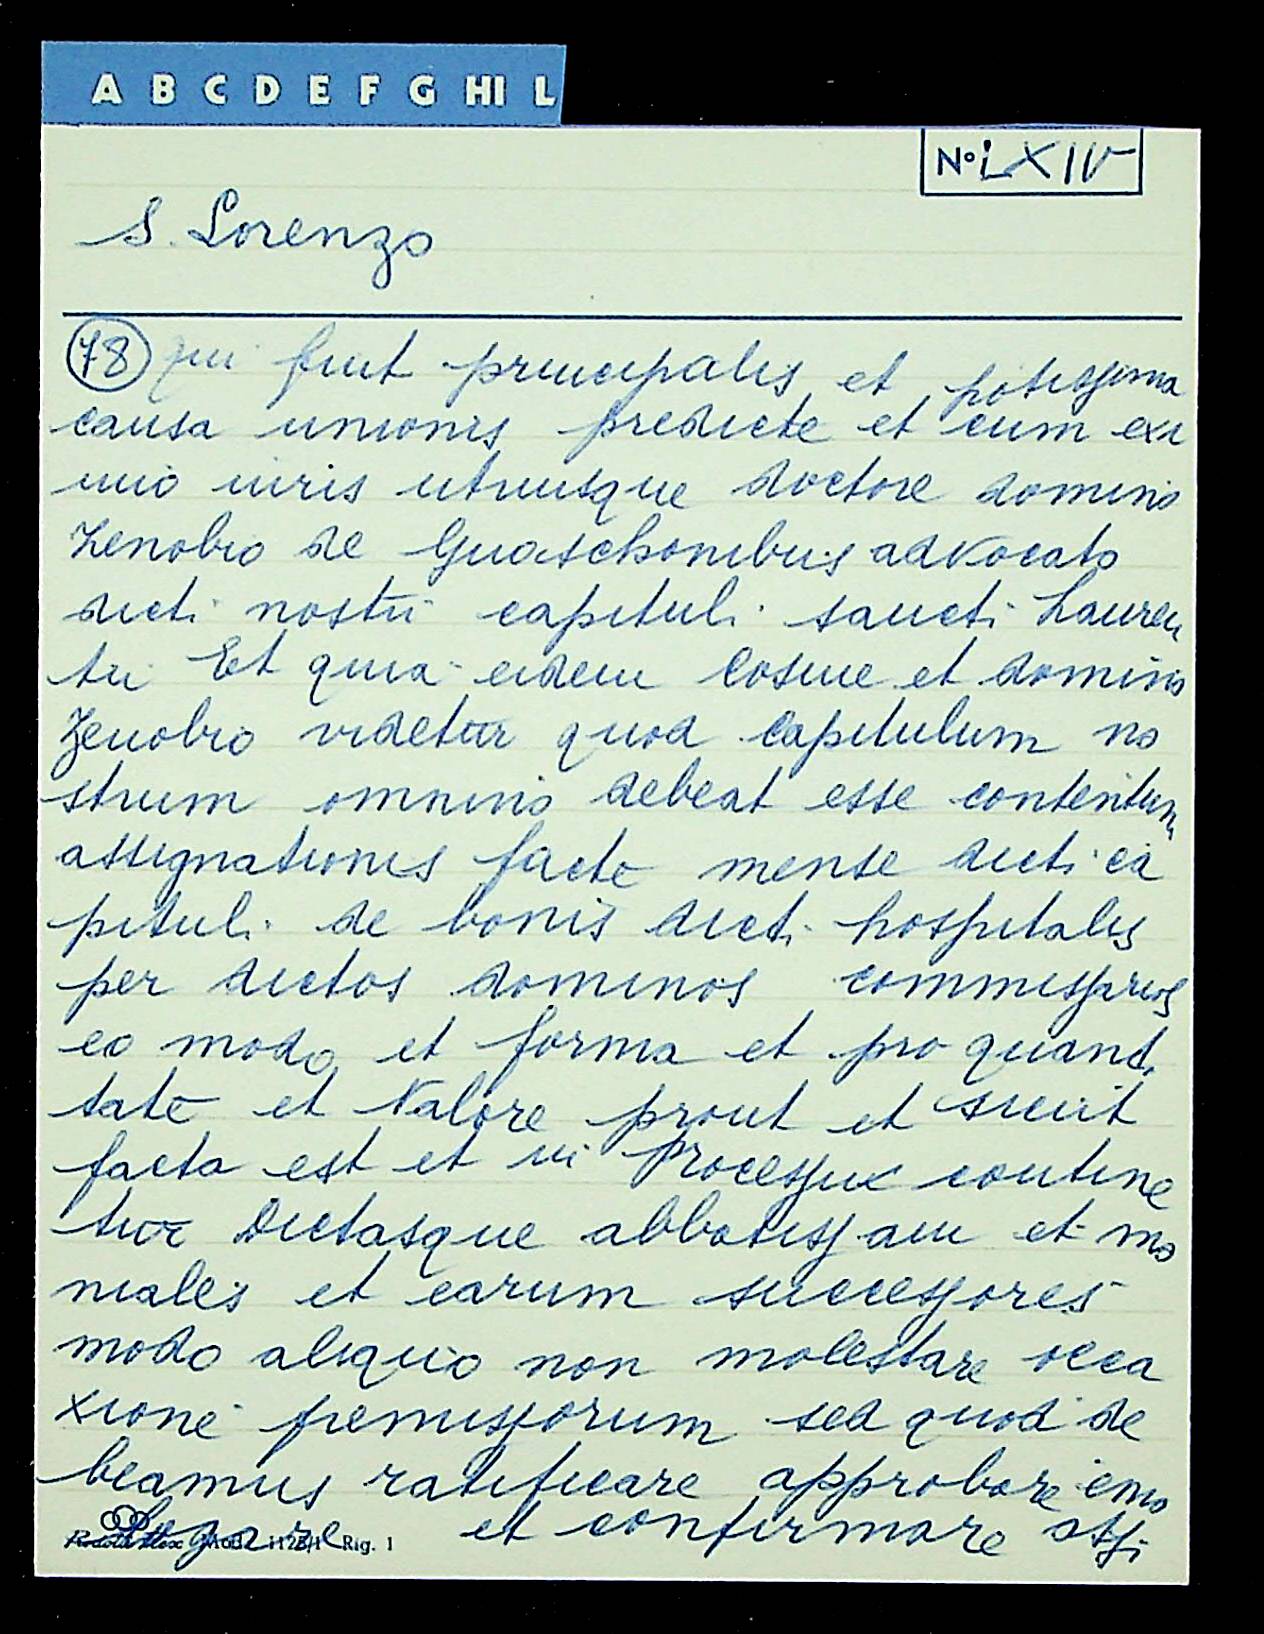 A B C D E F G HI L
N° LXIV
S. Lorenzo
78 qui fuit principalis et potissima
causa unionis predicte et cum exi
mio iuris utriusque doctore domino
Zenobio de Guaschonibus advocato
dicti nostri capituli sancti Lauren
tii Et quia eidem Cosme et domino
Zenobio videtur quod capitulum no
strum omnino debeat esse contentum
assignationis facte mense dicti ca
pituli de bonis dicti hospitalis
per dictos dominos commissarios
eo modo et forma et pro quanti
tate et valore prout et sicut
facta est et in processu contine
tur Dictasque abbatissam et mo
niales et earum successores
modo aliquo non molestare occa
xione premissorum sed quod de
beamus ratificare approbare emo
logare et confirmare
Mod. 1128/1 Rig. 1